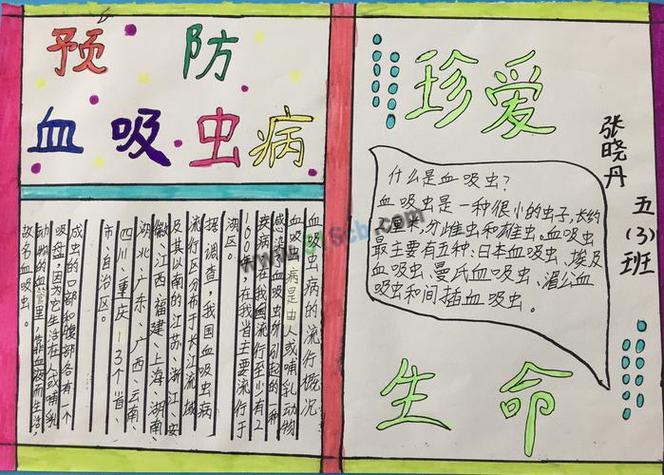 预防
血吸虫病
血吸虫病的流行概况
血吸虫病是由人或哺乳动物
感染血吸虫所引起的一种
疾病,在我国流行至少有2
100年,在我省主要流行于
湖区。
据调查,我国血吸虫病
流行区分布于长江流域
及其以南的江苏、浙江、安
徽、江西、福建、上海、湖南、
湖北、广东、广西、云南、
四川、重庆13个省、
市、自治区。
成虫的口部和腹部各有一个
吸盘,因为它生活在人或哺乳
动物的血管里,靠吸血而生活,
故名血吸虫。
珍爱
张晓丹
五(3)班
什么是血吸虫?
血吸虫是一种很小的虫子,长约
厘米,分雌虫和雄虫。血吸虫
最主要有五种:日本血吸虫、埃及
血吸虫、曼氏血吸虫、湄公血
吸虫和间插血吸虫。
生命